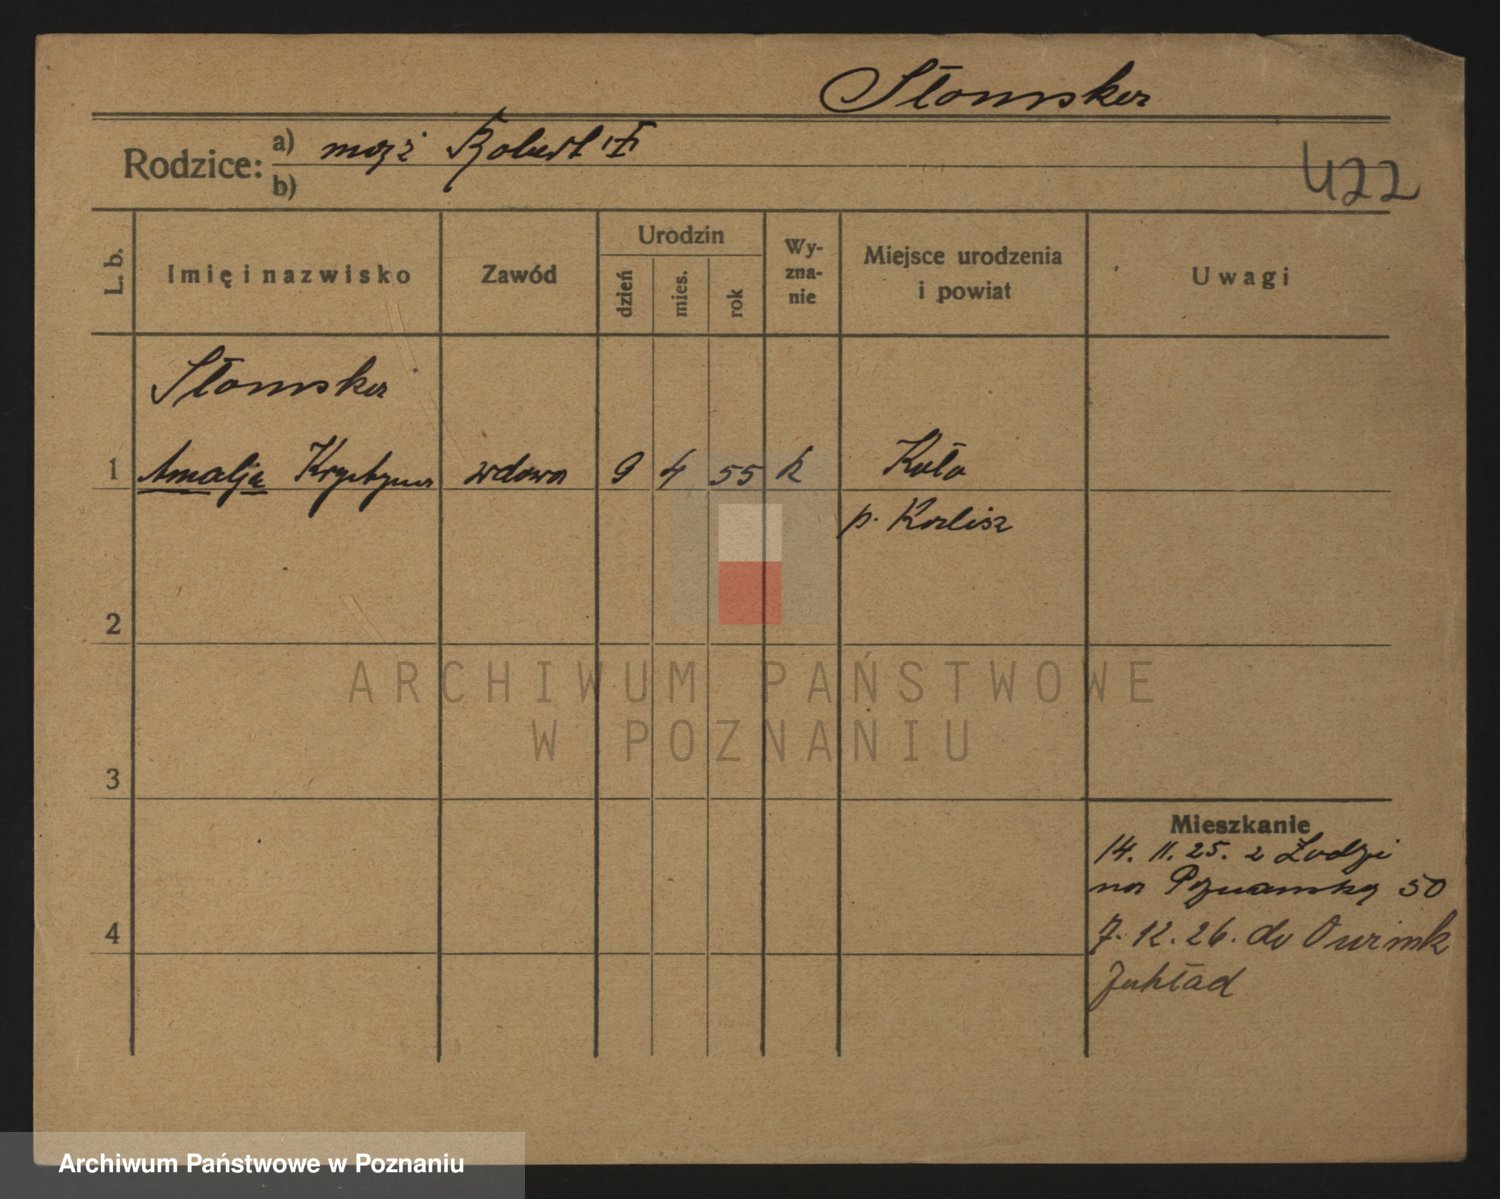 Słomska
Rodzice: a) mąż Robert
b)
422
L. b.
Imię i nazwisko
Zawód
Urodzin
dzień
mies.
rok
Wy-
zna-
nie
Miejsce urodzenia
i powiat
Uwagi
Słomska
1 Amalja Krystyna wdowa 9 4 55 k Koło
p. Kalisz
2
ARCHIWUM PAŃSTWOWE
W POZNANIU
3
Mieszkanie
14. 11. 25. z Łodzi
na Poznańską 50
4
7. 12. 26. do Owińsk
Zakład
Archiwum Państwowe w Poznaniu